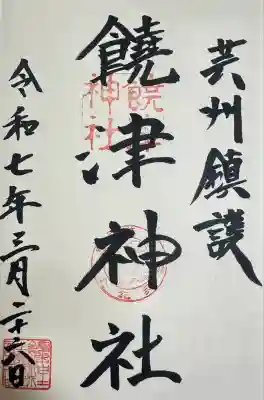 芸州鎮護
饒津神社
令和七年三月二十六日
饒津
神社